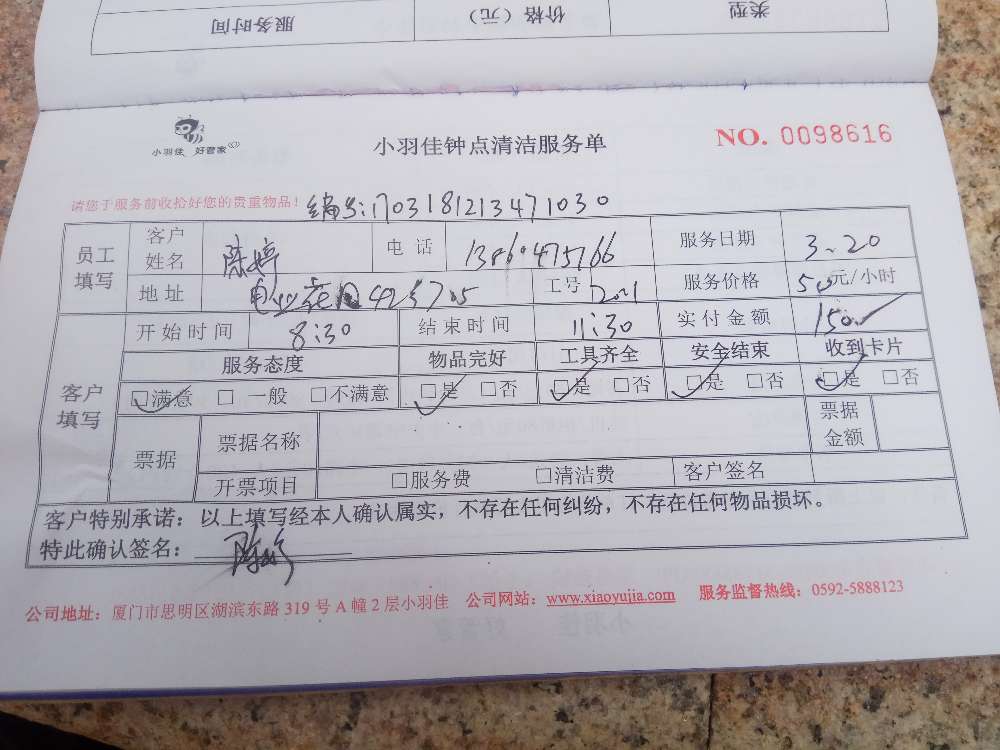 类型 价格（元） 服务时间
小羽佳 好管家
小羽佳钟点清洁服务单
NO. 0098616
请您于服务前收拾好您的贵重物品！ 编号:1703181213471030
员工填写 客户姓名 陈婷 电话 服务日期 3.20
地址 工号 服务价格 50元/小时
开始时间 8:30 结束时间 11:30 实付金额 150
客户填写 服务态度 物品完好 工具齐全 安全结束 收到卡片
□满意 □ 一般 □不满意 □是 □否 □是 □否 □是 □否 □是 □否
票据 票据名称 票据金额
开票项目 □服务费 □清洁费 客户签名
客户特别承诺：以上填写经本人确认属实，不存在任何纠纷，不存在任何物品损坏。
特此确认签名： 陈婷
公司地址：厦门市思明区湖滨东路 319 号 A 幢 2 层小羽佳 公司网站：www.xiaoyujia.com 服务监督热线：0592-5888123